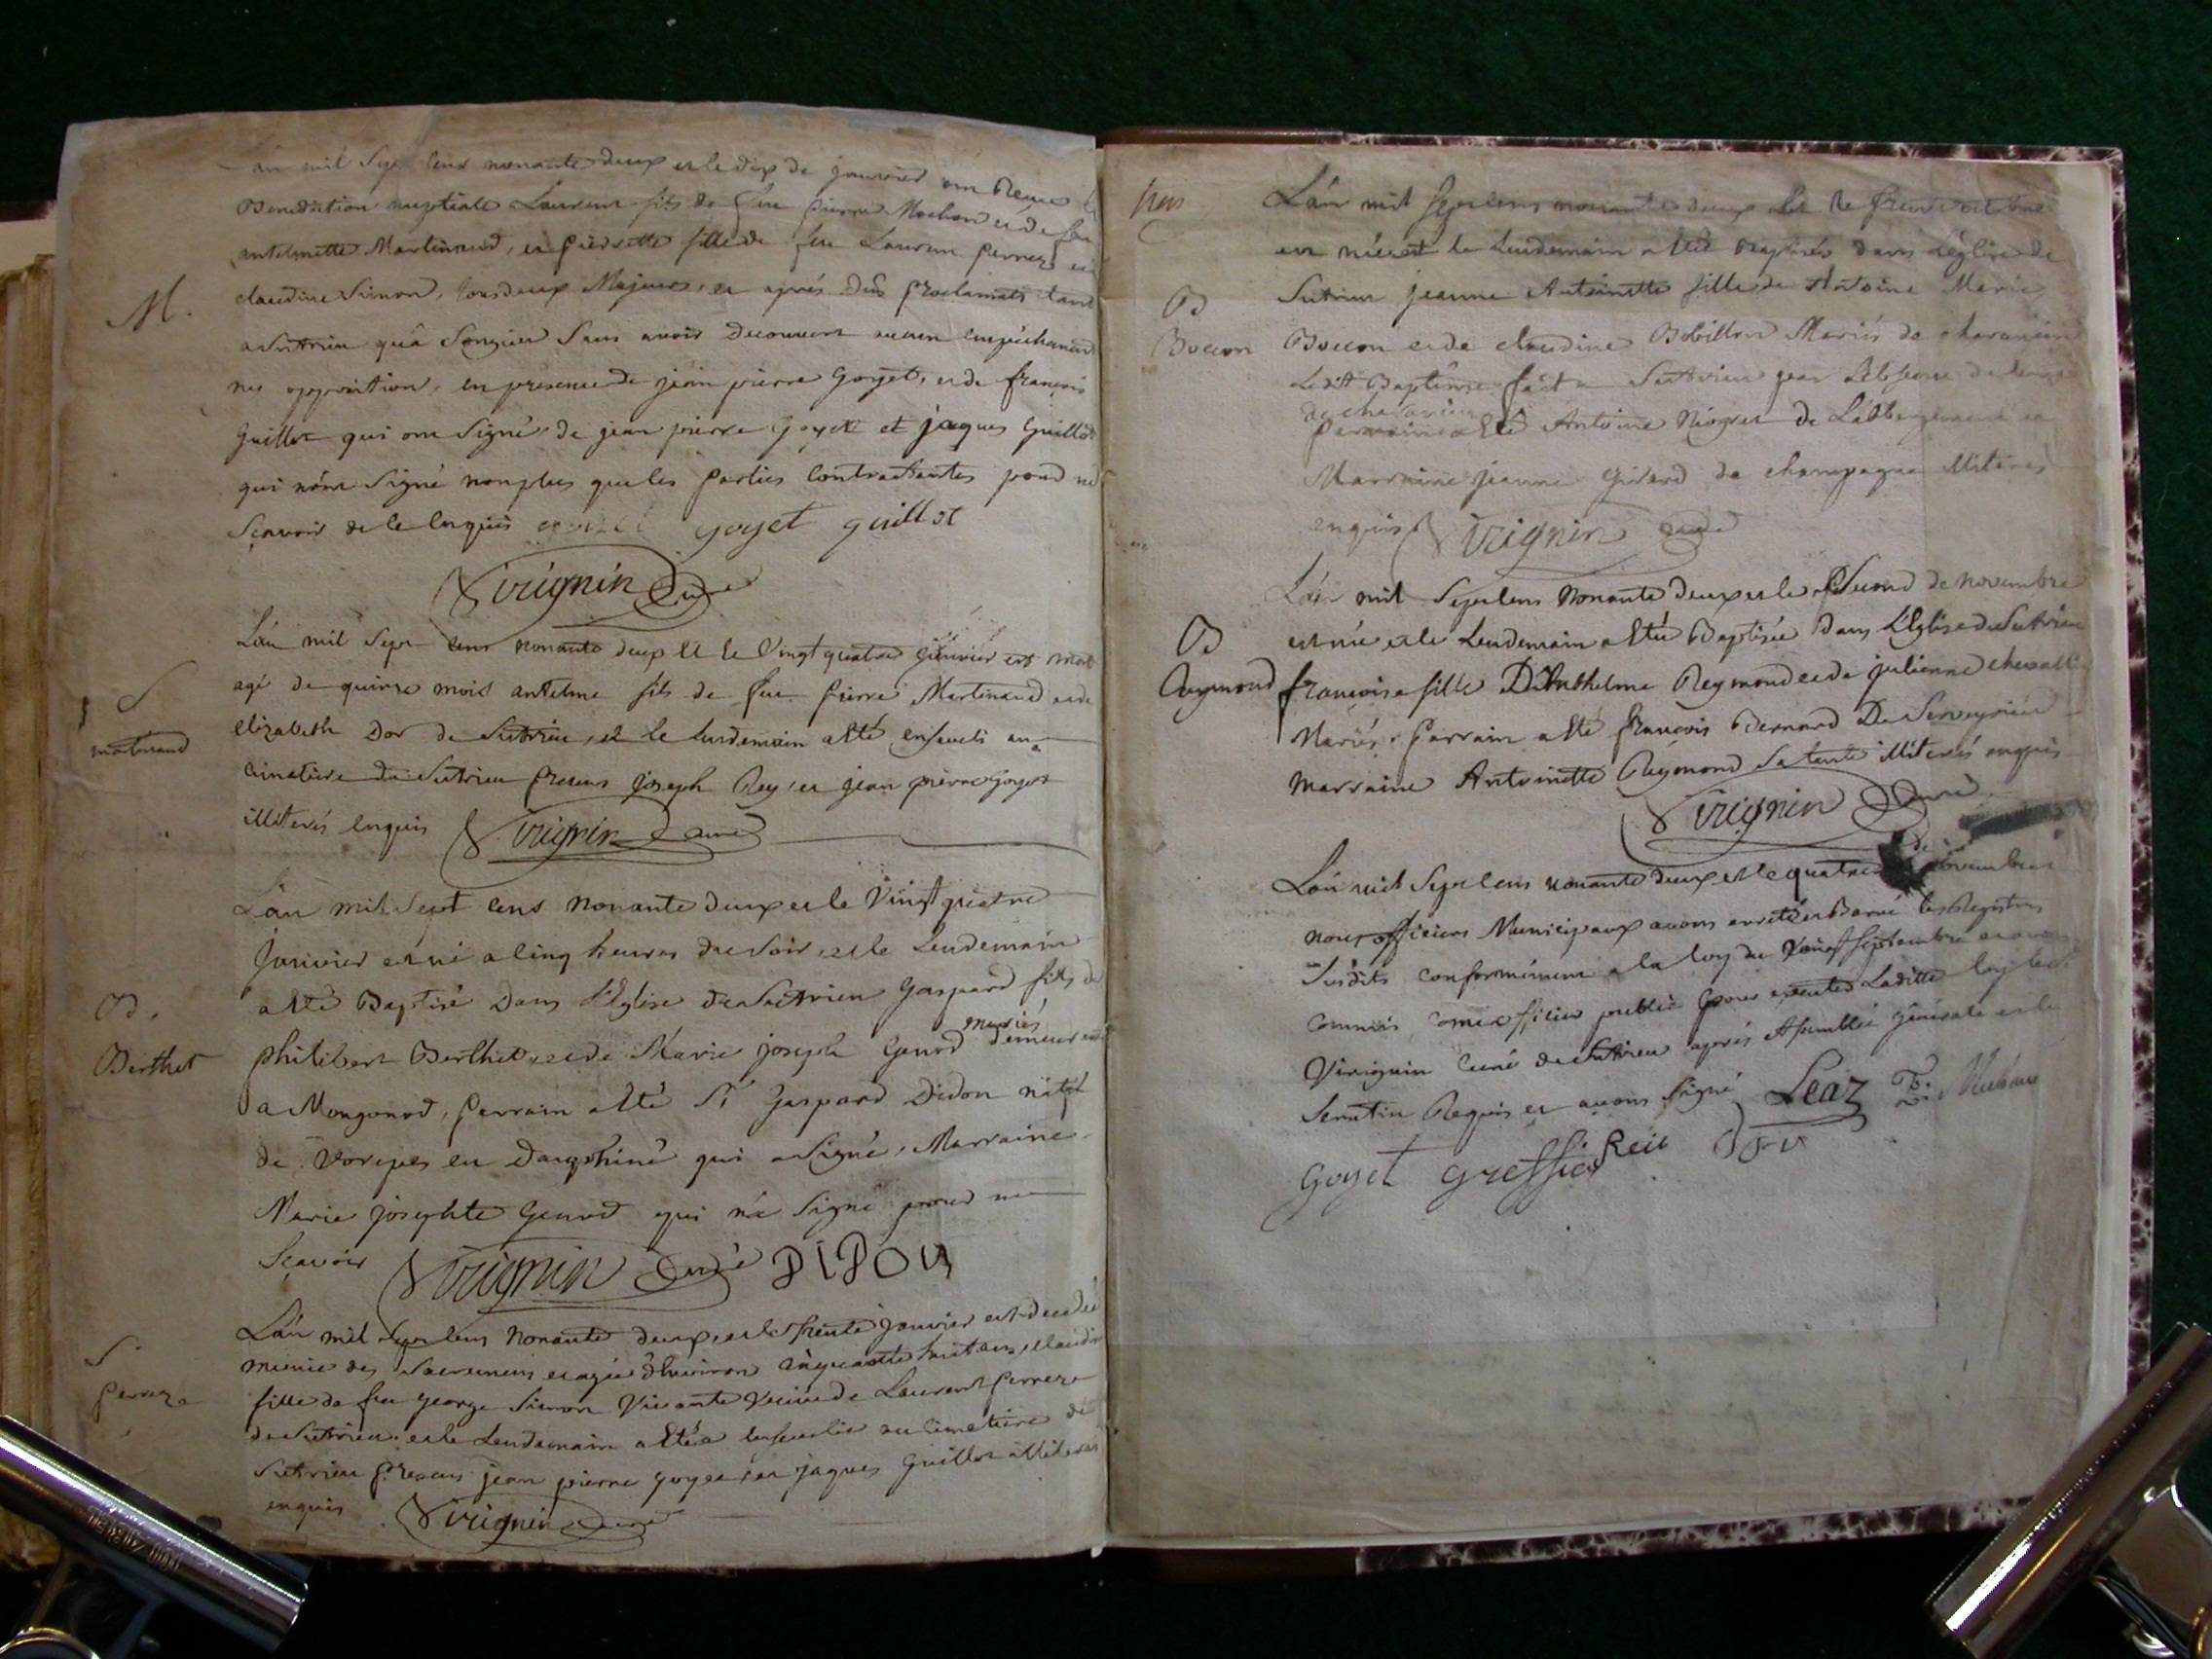 L'an mil Sept Cens nonante deux et le dix de janvier ont Reçue la
Benediction nuptiale Laurent fils de feu pierre Mochon et de feu
antelmette Martinand, et pierrette fille de feu Laurent perrez et
claudine Simon, tous deux Majeurs, et après Dûs proclamats tant
M.
a Sutrieu qu'à Songieu Sans avoir Decouvert aucun empêchement
ny opposition, en presence de jean pierre Goyet, et de françois
Guillot qui ont Signé, de jean pierre Goyet et jaques Guillot
qui n'ont Signé non plus que les parties Contractantes pour ne
Sçavoir de ce Enquis goyet guillot
Virignin Curé
L'an mil Sept Cens nonante deux et le Vingt quatre janvier est mort
agé de quinze mois antelme fils de feu pierre Martinand et de
S
martinand
elizabeth Dor de Sutrieu, et le lendemain a Eté enseveli au
cimetière de Sutrieu presens joseph Rey, et jean pierre Goyet
illiterés Enquis Virignin Curé
L'an mil Sept Cens Nonante deux et le Vingt quatre
janvier est né a Cinq heures du Soir, et le Lendemain
a Eté Baptisé Dans l'Eglise de Sutrieu Gaspard fils de
B.
mariés
philibert Berthet, et de Marie joseph Genod demeurant
Berthet
a Mongonod, parrain a Eté Sr Gaspard Didon natif
de Voreppes en Dauphiné qui a Signé, Marraine
Marie josephte Genod qui n'a Signé pour ne
Scavoir Virignin Curé DIDON
L'an mil Sept Cens Nonante deux, et le trente janvier est decedée
munie des Sacremens et agée d'Environ cinquante huit ans, claudine
S
perrez
fille de feu George Simon Vivante Veuve de Laurent perrez
de Sutrieu et le Lendemain a Etée Ensevelie au cimetière de
Sutrieu presens jean pierre goyet, et jaques Guillot illiterés
enquis Virignin Curé
L'an mil Sept Cens nonante deux et le trente octobre
est née et le Lendemain a Eté Baptisée dans L'église de
Sutrieu jeanne Antoinette fille de Antoine Marie
B
Bocon
Bocon et de claudine Bobillon Mariés de charancin
Ledit Baptême fait a Sutrieu par
de charancin
parrain a Eté Antoine de
Marraine jeanne Girard de champagne illiterés
enquis Virignin Curé
L'an mil Sept Cens Nonante deux et le Second de novembre
B
est née et le Lendemain a Etée Baptisée Dans L'Eglise de Sutrieu
Reymond
françoise fille D'Anthelme Reymond et de julienne
Mariés, Parrain a Eté françois Bernard De
Marraine Antoinette Reymond Sa tante illiterés enquis
Virignin Curé
L'an mil Sept Cens nonante deux et le quatre de novembre
nous officiers Municipaux avons arreté et Barré les Registres
Susdits conformement a la loy du Vingt Septembre et avons
Commis Come officier public pour executer Laditte loy
Virignin Curé de Sutrieu après Assemblée générale et le
Scrutin Requis et avons Signé Leaz
Goyet greffier Reii Dor